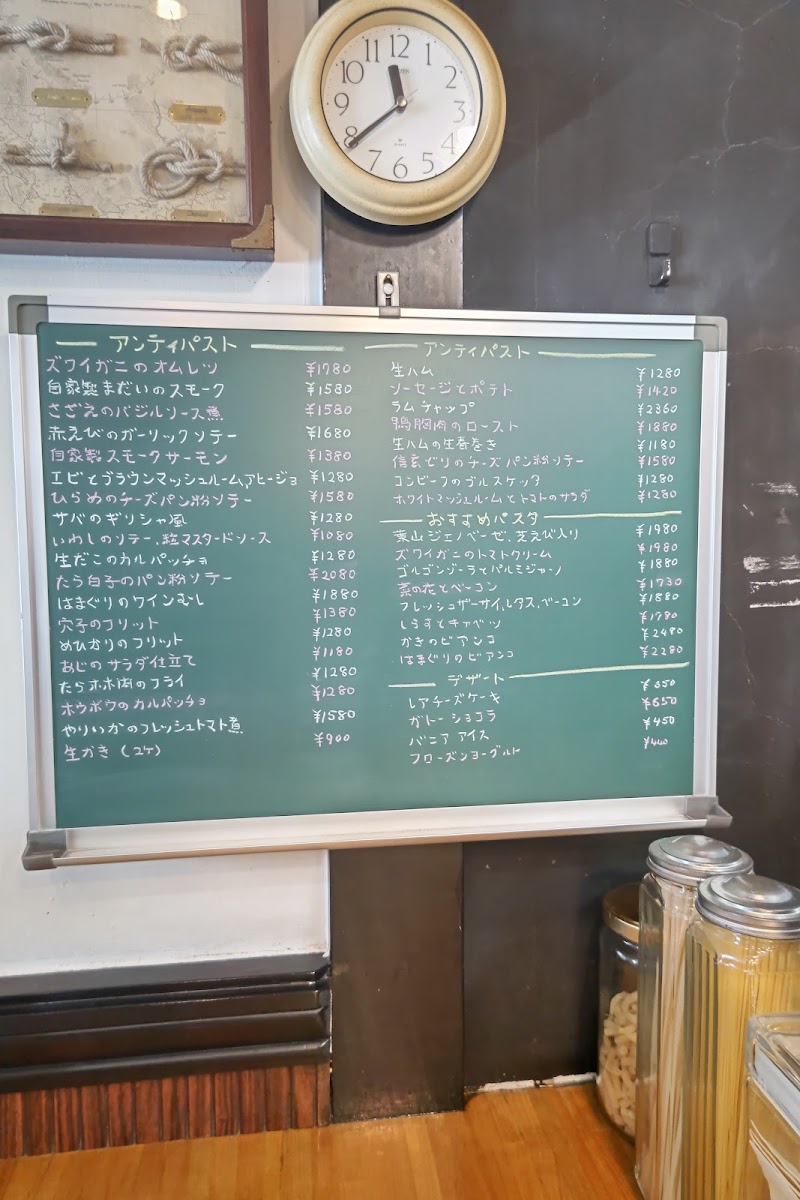 12 1 2 3 4 5 6 7 8 9 10 11
アンティパスト
ズワイガニのオムレツ ¥1780
自家製まだいのスモーク ¥1580
さざえのバジルソース煮 ¥1580
赤えびのガーリックソテー ¥1680
自家製スモークサーモン ¥1380
エビとブラウンマッシュルーム,アヒージョ ¥1280
ひらめのチーズパン粉ソテー ¥1580
サバのギリシャ風 ¥1280
いわしのソテー、粒マスタードソース ¥1080
生だこのカルパッチョ ¥1280
たら白子のパン粉ソテー ¥2080
はまぐりのワインむし ¥1880
穴子のフリット ¥1380
めひかりのフリット ¥1280
あじのサラダ仕立て ¥1180
たらホホ肉のフライ ¥1280
ホウボウのカルパッチョ ¥1280
やりいかのフレッシュトマト煮 ¥1580
生かき（2ケ） ¥900
アンティパスト
生ハム ¥1280
ソーセージとポテト ¥1420
ラムチャップ ¥2360
鴨胸肉のロースト ¥1880
生ハムの生春巻き ¥1180
信玄どりのチーズパン粉ソテー ¥1580
コンビーフのブルスケッタ ¥1280
ホワイトマッシュルームとトマトのサラダ ¥1280
おすすめパスタ
葉山ジェノベーゼ、芝えび入り ¥1980
ズワイガニのトマトクリーム ¥1980
ゴルゴンゾーラとパルミジャーノ ¥1880
菜の花とベーコン ¥1730
フレッシュザーサイ,レタス、ベーコン ¥1880
しらすとキャベツ ¥1780
かきのビアンコ ¥2480
はまぐりのビアンコ ¥2280
デザート
レアチーズケーキ ¥650
ガトーショコラ ¥650
バニアアイス ¥450
フローズンヨーグルト ¥440